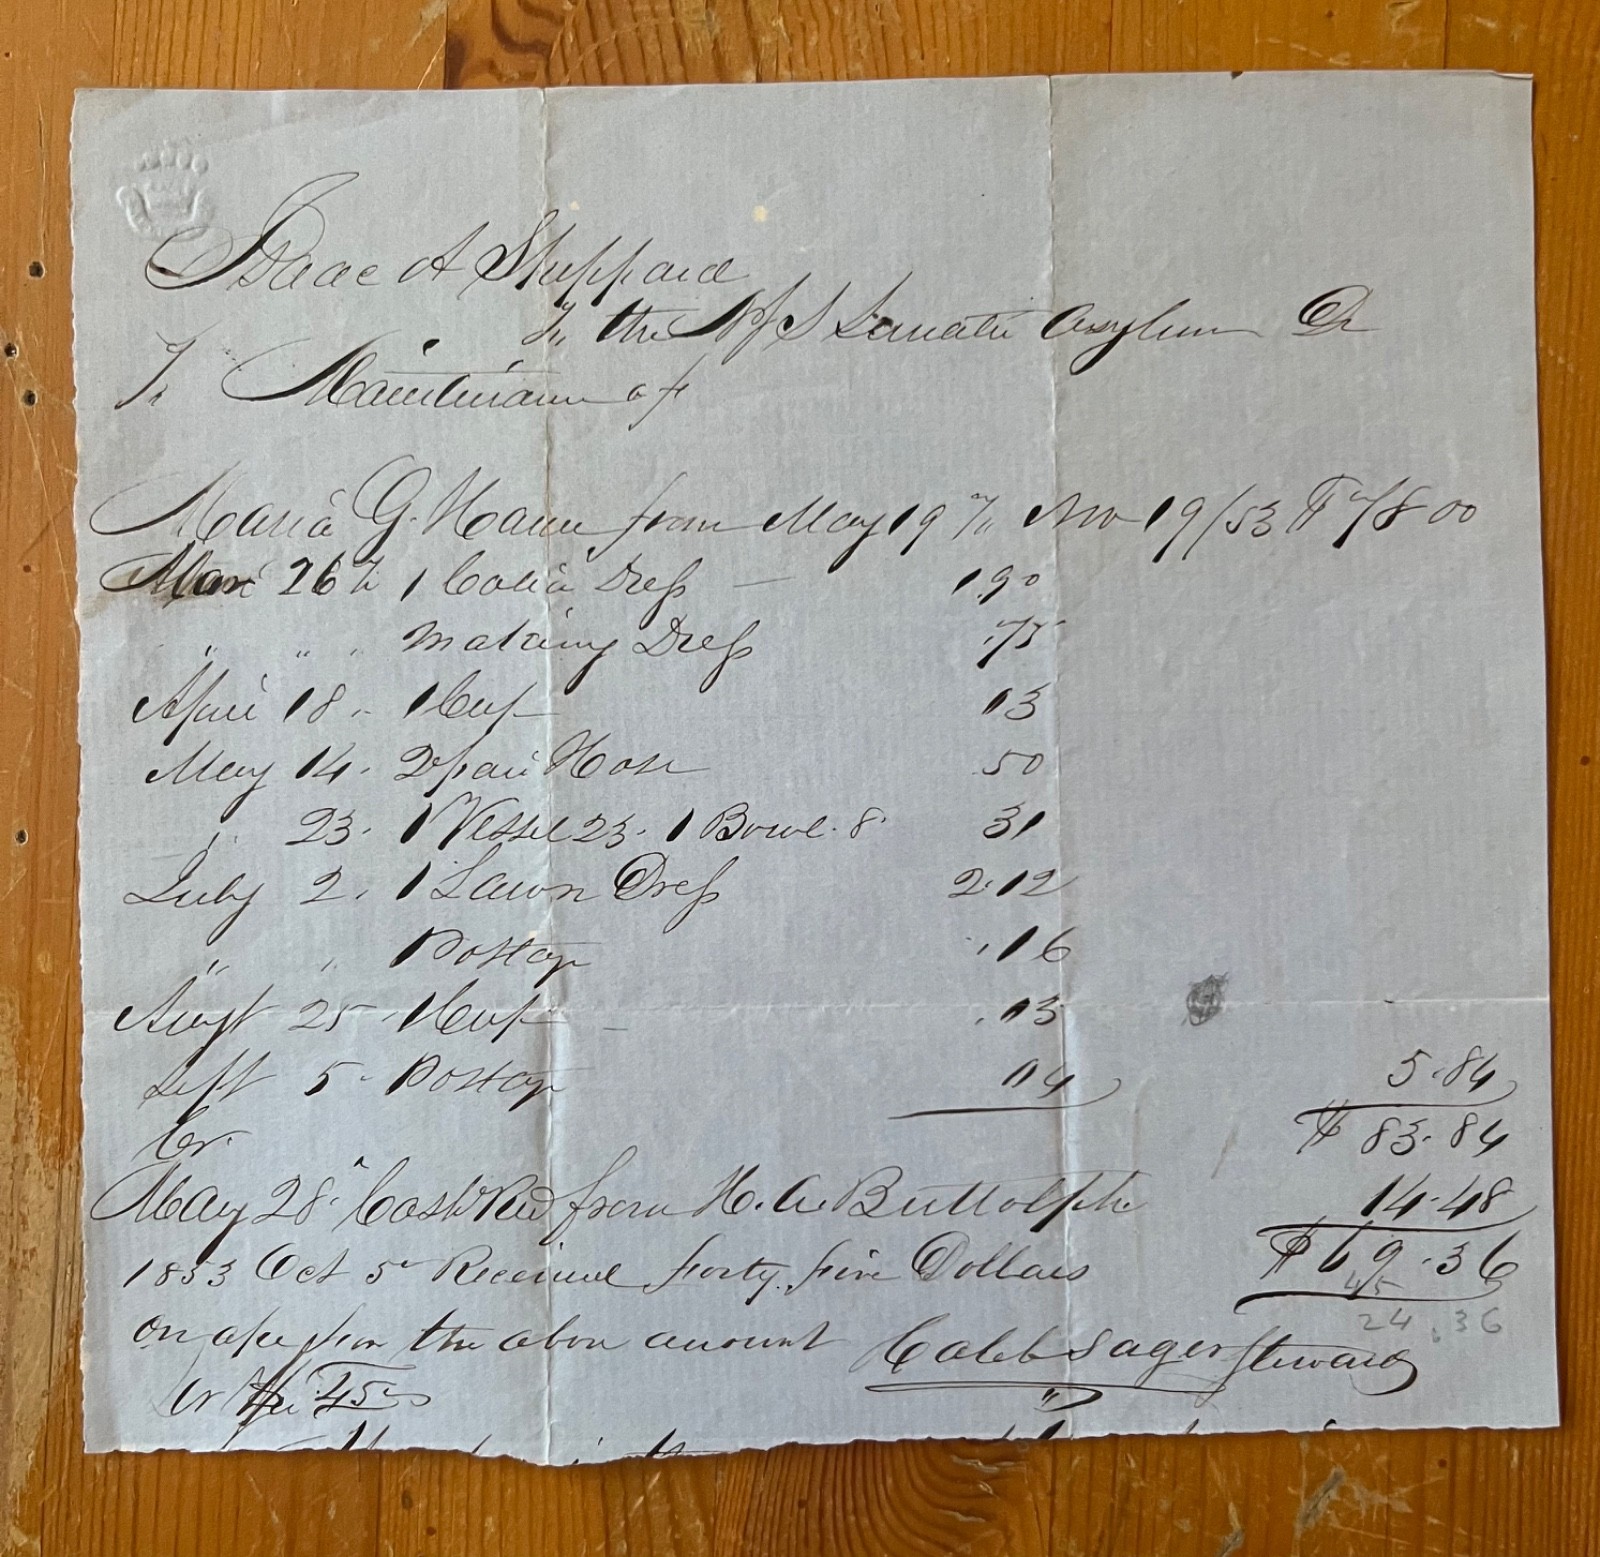 Isaac A Sheppard
To the N J S Lunatic Asylum Dr
To Maintenance of
Maria G. Hann from May 19 To Nov 19/53 $78 00
Mar 26 To 1 Calico Dress — 1.90
" " " Making Dress .75
April 18 " 1 Cup 13
May 14 " 2 pair Hose .50
" 23 " 1 Vessel 23. 1 Bowl. 8 31
July 2 " 1 Lawn Dress 2.12
" " Postage .16
Augt 25 " 1 Cup .13
Sept 5 " Postage 04 5.84
$ 83.84
Cr.
May 28. Cash Recd from H. A. Buttolph 14.48
$ 69.36
1853 Oct 5 Received forty five Dollars
45
24.36
on a/c for the above amount Caleb Sager Steward
Cr 45